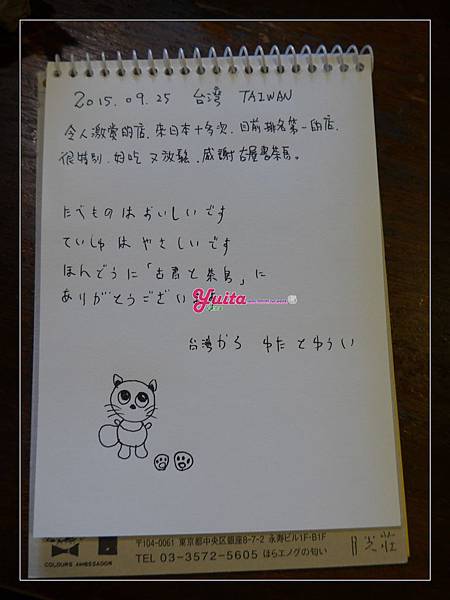 2015.09.25 台湾 TAIWAN
令人激赏的店.來日本十多次.目前排名第一的店.
很特別.好吃又放鬆.感謝古屋
たべものはおいしいです
ていしゅはやさしいです
ほんとうに「古
ありがとうござい
Yuita
台湾から ゆた とゆうい
〒104-0061 東京都中央区銀座8-7-2 永寿ビル1F-B1F
TEL 03-3572-5605 ほらエノグの匂い
COLOURS AMBASSADOR